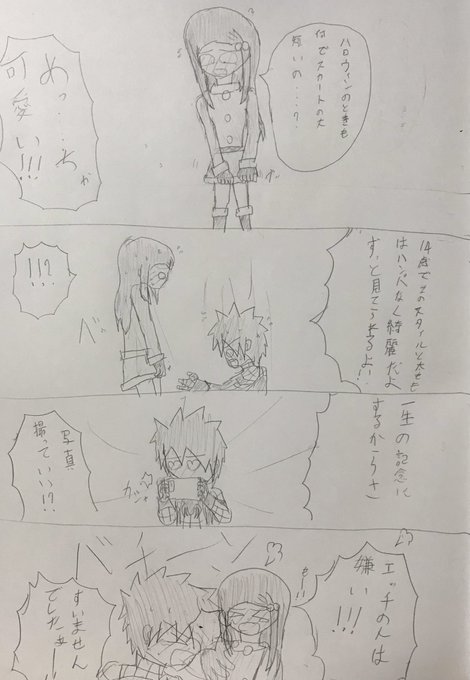 ハロウィンのときも
何でスカートの丈
短いの・・・？
めっ・・ちゃ
可愛い!!!
14歳でそのスタイルと太もも
はハンパなく綺麗だよ
ずっと見てられるよ!!
!!?
一生の記念に
するからさ
写真
撮っていい!?
ガシャ
エッチのんは
嫌い!!!
すいません
でしたぁー